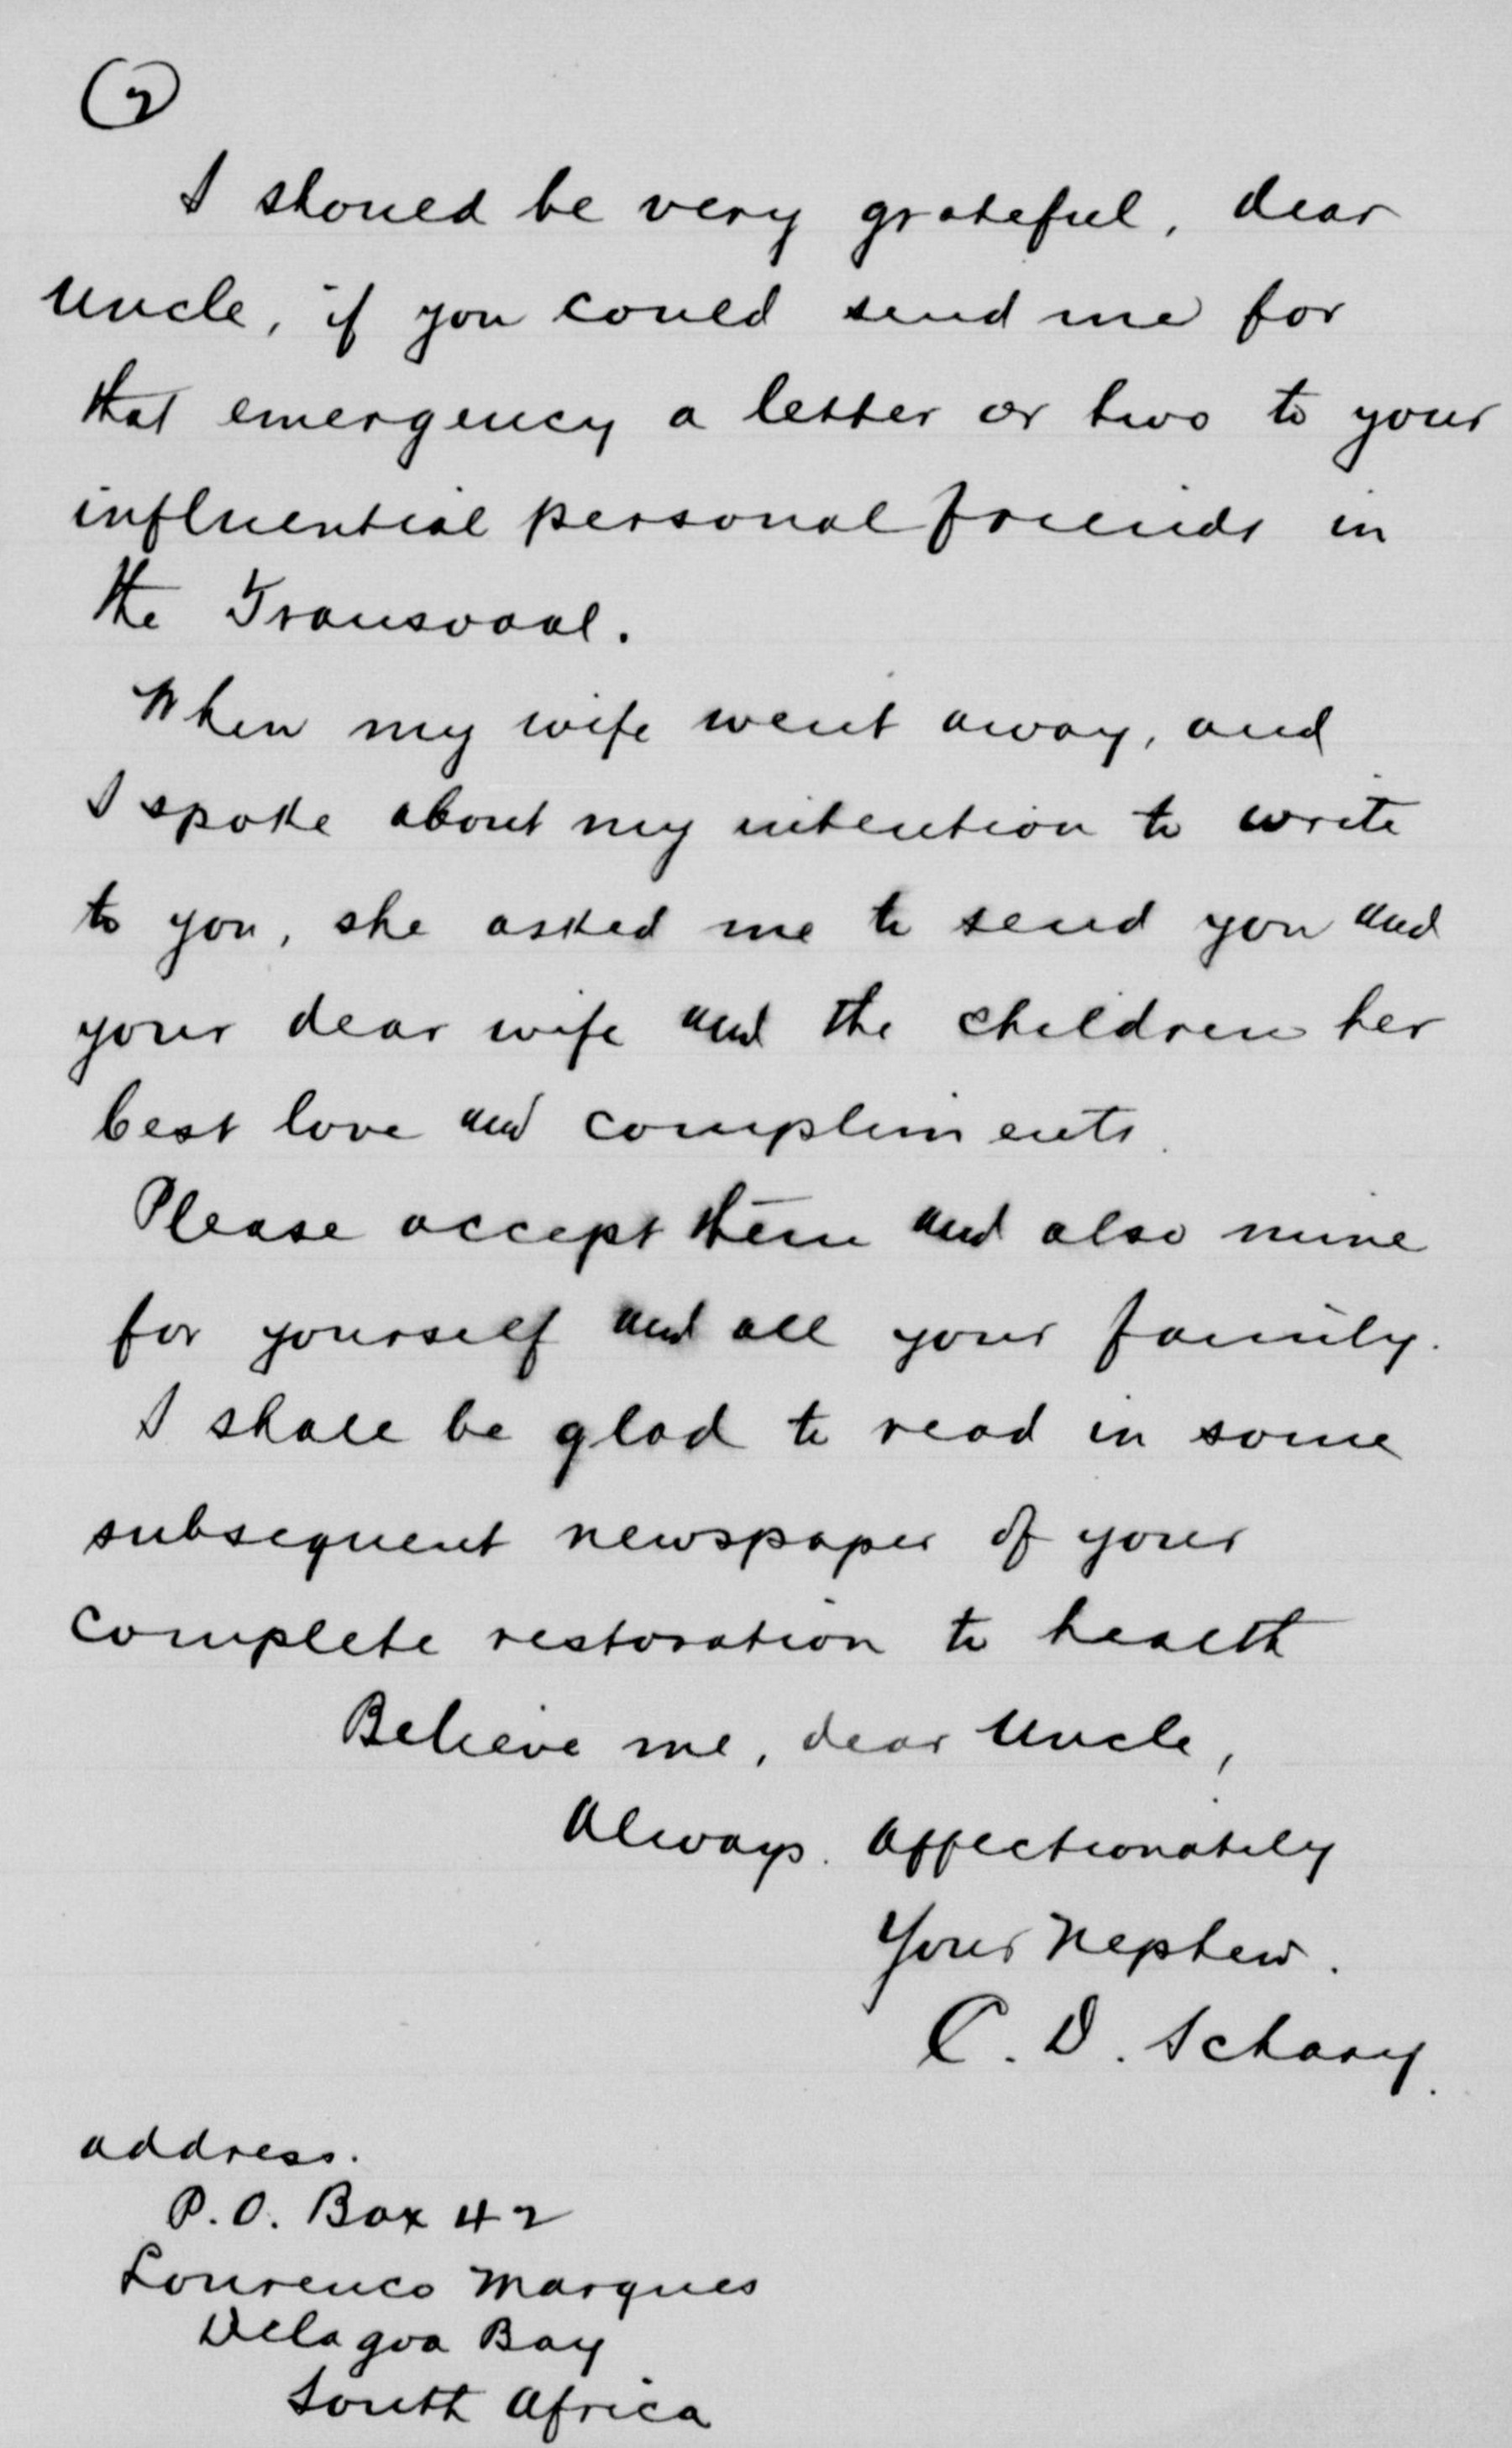 (2)
I should be very grateful, dear
Uncle, if you could send me for
that emergency a letter or two to your
influential personal friends in
the Transvaal.
When my wife went away, and
I spoke about my intention to write
to you, she asked me to send you and
your dear wife and the children her
best love and compliments.
Please accept them and also mine
for yourself and all your family.
I shall be glad to read in some
subsequent newspaper of your
complete restoration to health
Believe me, dear Uncle,
Always Affectionately
Your Nephew.
C. D. Schary.
address.
P.O. Box 42
Lourenco Marques
Delagoa Bay
South Africa